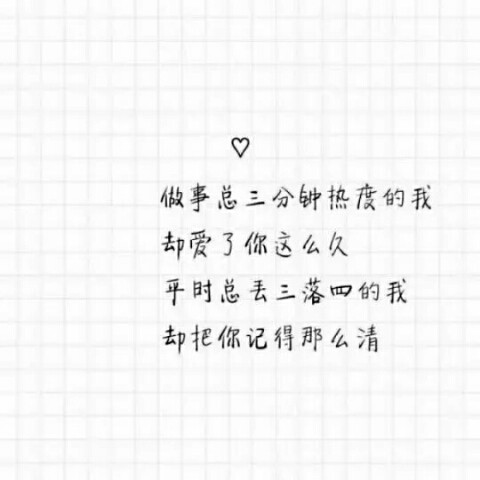 ♡
做事总三分钟热度的我
却爱了你这么久
平时总丢三落四的我
却把你记得那么清